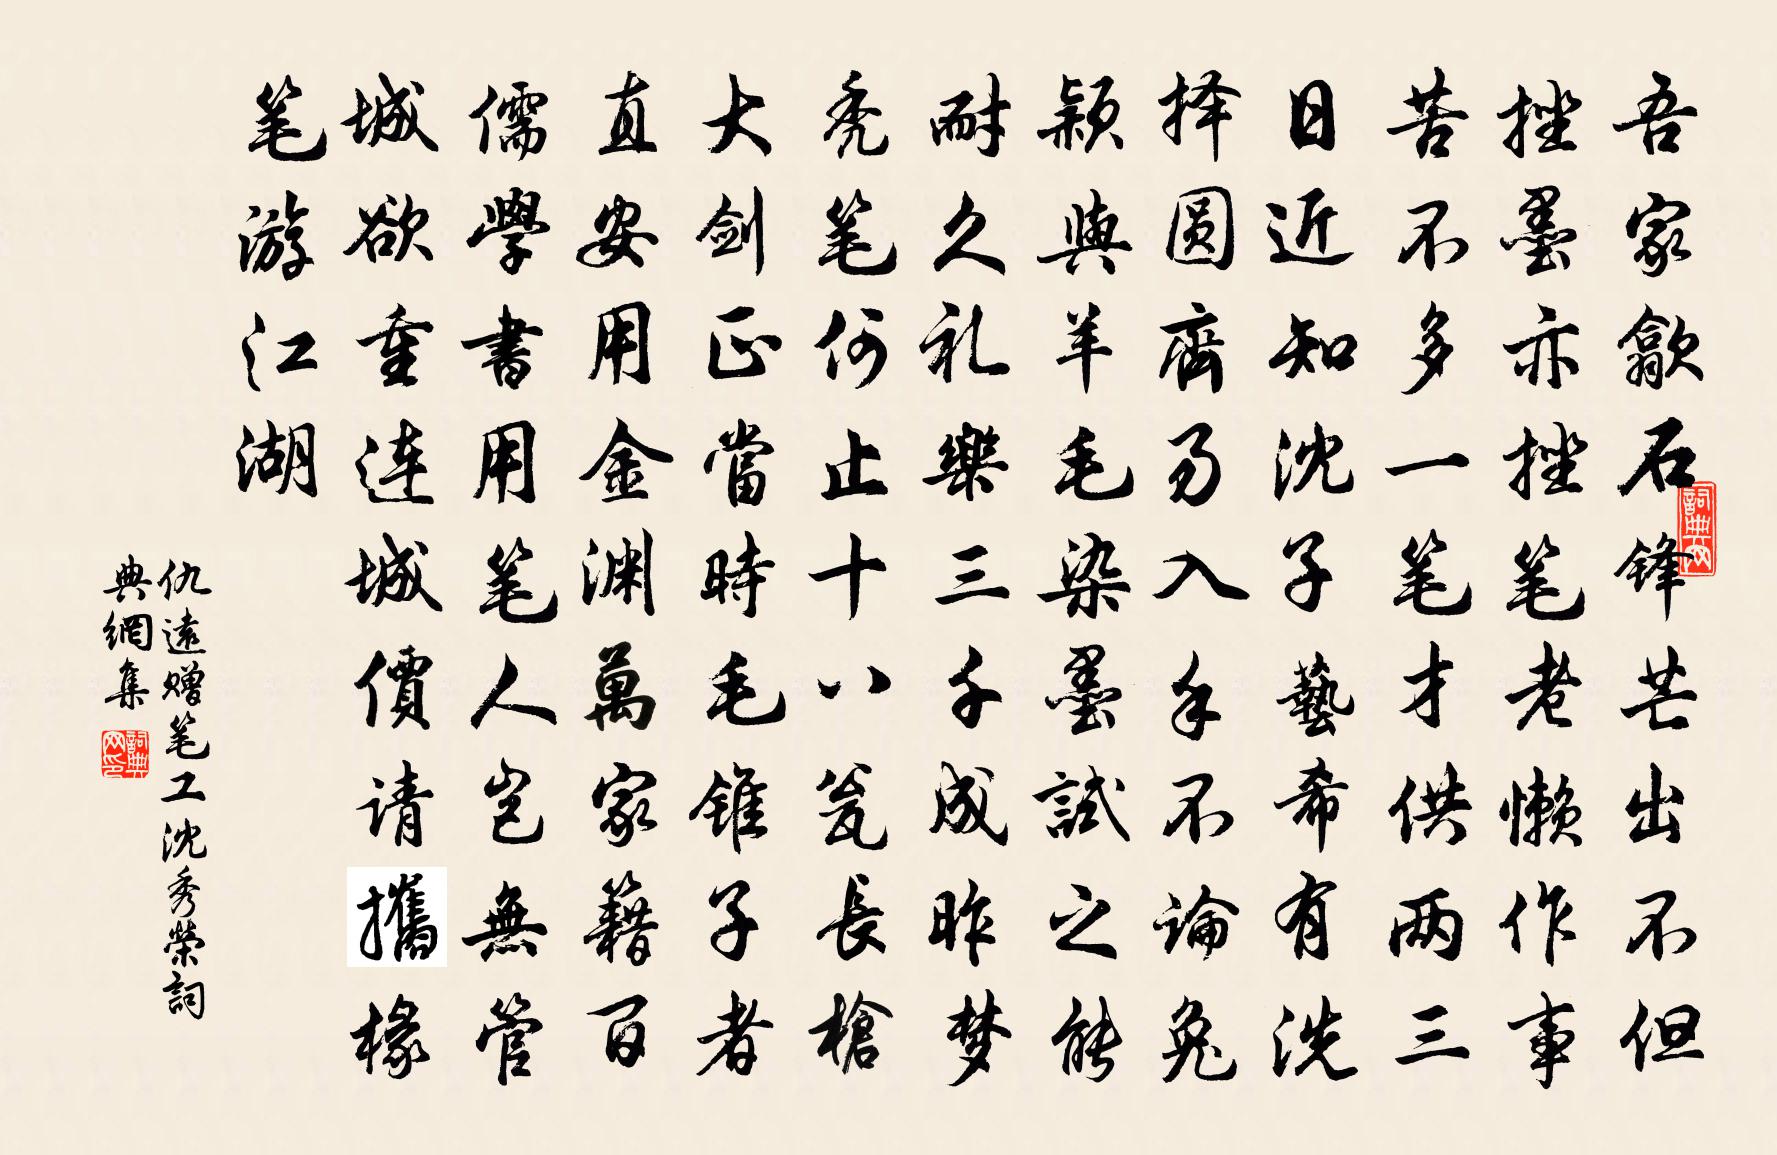 吾家歙石锋芒出不但
挫墨亦挫笔老懒作事
苦不多一笔才供两三
日近知沈子藝希有洗
择圆齊易入手不論兔
颖與羊毛染墨試之能
耐久礼樂三千成昨梦
秃笔何止十八瓮長槍
大剑正當時毛锥子者
直安用金渊萬家籍百
儒學書用笔人岂無管
城欲重连城價请攜椽
笔游江湖
仇遠赠笔工沈秀榮詞
典網集
詞典网
詞典网印